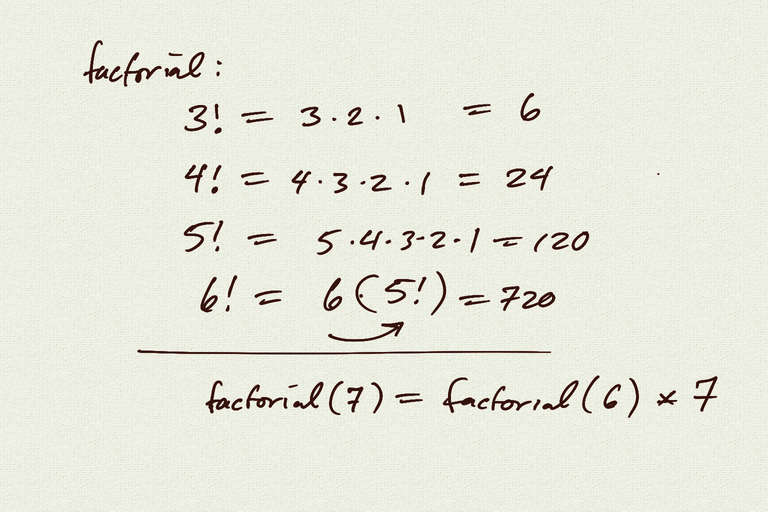 factorial:
3! = 3·2·1 = 6
4! = 4·3·2·1 = 24
5! = 5·4·3·2·1 = 120
6! = 6(5!) = 720
factorial(7) = factorial(6) × 7